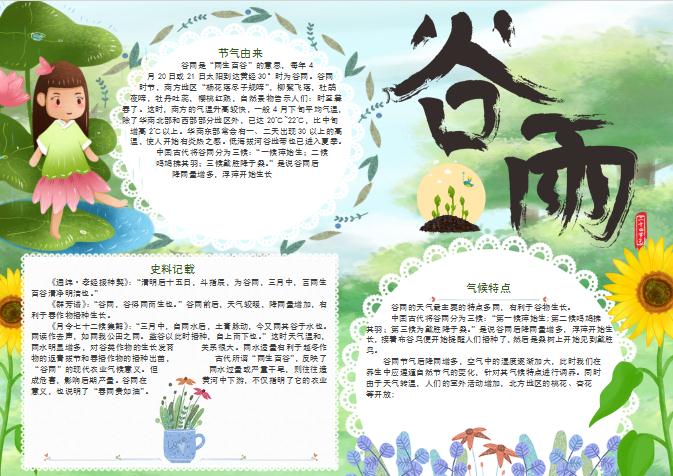 节气由来
谷雨是“雨生百谷”的意思，每年 4
月 20 日或 21 日太阳到达黄经 30°时为谷雨。谷雨
时节，南方地区“杨花落尽子规啼”，柳絮飞落，杜鹃
夜啼，牡丹吐蕊，樱桃红熟，自然景物告示人们：时至暮
春了。这时，南方的气温升高较快，一般 4 月下旬平均气温，
除了华南北部和西部部分地区外，已达 20℃~22℃，比中旬
增高 2℃以上。华南东部常会有一、二天出现 30 以上的高
温，使人开始有炎热之感。低海拔河谷地带也已进入夏季。
中国古代将谷雨分为三候：“一候萍始生；二候
鸣鸠拂其羽；三候戴胜降于桑。”是说谷雨后
降雨量增多，浮萍开始生长
谷雨
史料记载
《通纬·孝经援神契》：“清明后十五日，斗指辰，为谷雨，三月中，言雨生
百谷清净明洁也。”
《群芳谱》：“谷雨，谷得雨而生也。”谷雨前后，天气较暖，降雨量增加，有
利于春作物播种生长。
《月令七十二候集解》：“三月中，自雨水后，土膏脉动，今又雨其谷于水也。
雨读作去声，如雨我公田之雨。盖谷以此时播种，自上而下也。”这时天气温和，
雨水明显增多，对谷类作物的生长发育关系很大。雨水适量有利于越冬作
物的返青拔节和春播作物的播种出苗。古代所谓“雨生百谷”，反映了
“谷雨”的现代农业气候意义。但雨水过量或严重干旱，则往往造
成危害，影响后期产量。谷雨在黄河中下游，不仅指明了它的农业
意义，也说明了“春雨贵如油”。
气候特点
谷雨的天气最主要的特点多雨，有利于谷物生长。
中国古代将谷雨分为三候：“第一候萍始生；第二候鸣鸠拂其
羽；第三候为戴胜降于桑。”是说谷雨后降雨量增多，浮萍开始生
长，接着布谷鸟便开始提醒人们播种了，然后是桑树上开始见到戴胜
鸟。
谷雨节气后降雨增多，空气中的湿度逐渐加大，此时我们在
养生中应遵循自然节气的变化，针对其气候特点进行调养。同时
由于天气转温，人们的室外活动增加，北方地区的桃花、杏花
等开放；